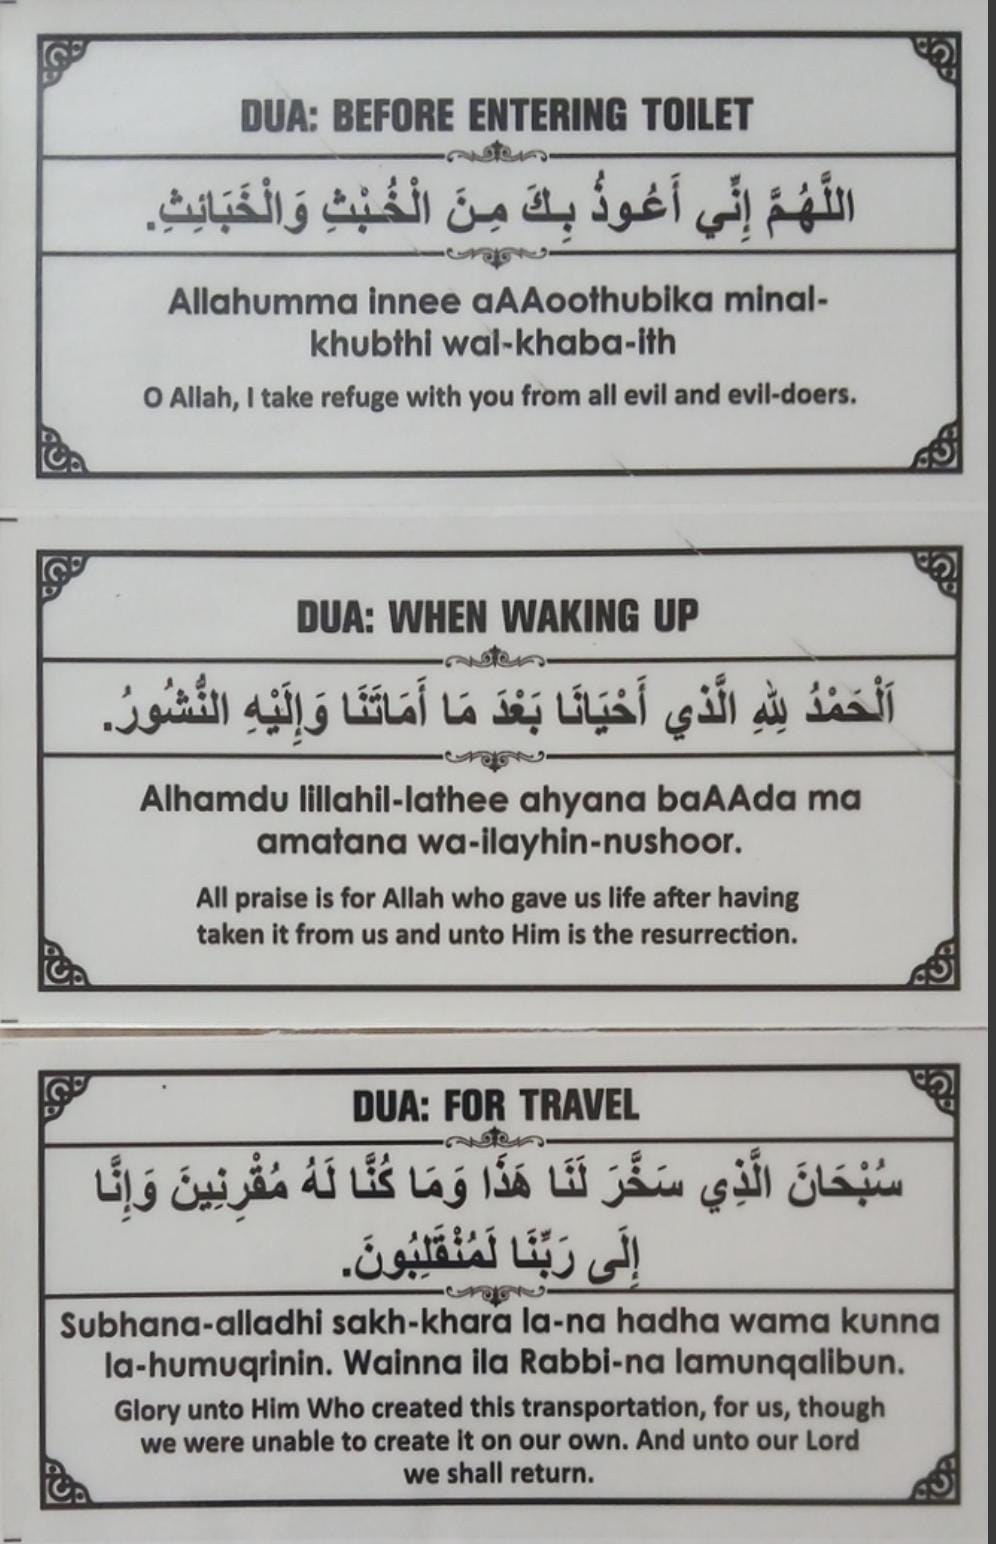 DUA: BEFORE ENTERING TOILET
اللَّهُمَّ إِنِّي أَعُوذُ بِكَ مِنَ الْخُبْثِ وَالْخَبَائِثِ.
Allahumma innee aAAoothubika minal-
khubthi wal-khaba-ith
O Allah, I take refuge with you from all evil and evil-doers.
DUA: WHEN WAKING UP
اَلْحَمْدُ لِلَّهِ الَّذِي أَحْيَانَا بَعْدَ مَا أَمَاتَنَا وَإِلَيْهِ النُّشُورُ.
Alhamdu lillahil-lathee ahyana baAAda ma
amatana wa-ilayhin-nushoor.
All praise is for Allah who gave us life after having
taken it from us and unto Him is the resurrection.
DUA: FOR TRAVEL
سُبْحَانَ الَّذِي سَخَّرَ لَنَا هَذَا وَمَا كُنَّا لَهُ مُقْرِنِينَ وَإِنَّا
إِلَى رَبِّنَا لَمُنْقَلِبُونَ.
Subhana-alladhi sakh-khara la-na hadha wama kunna
la-humuqrinin. Wainna ila Rabbi-na lamunqalibun.
Glory unto Him Who created this transportation, for us, though
we were unable to create it on our own. And unto our Lord
we shall return.